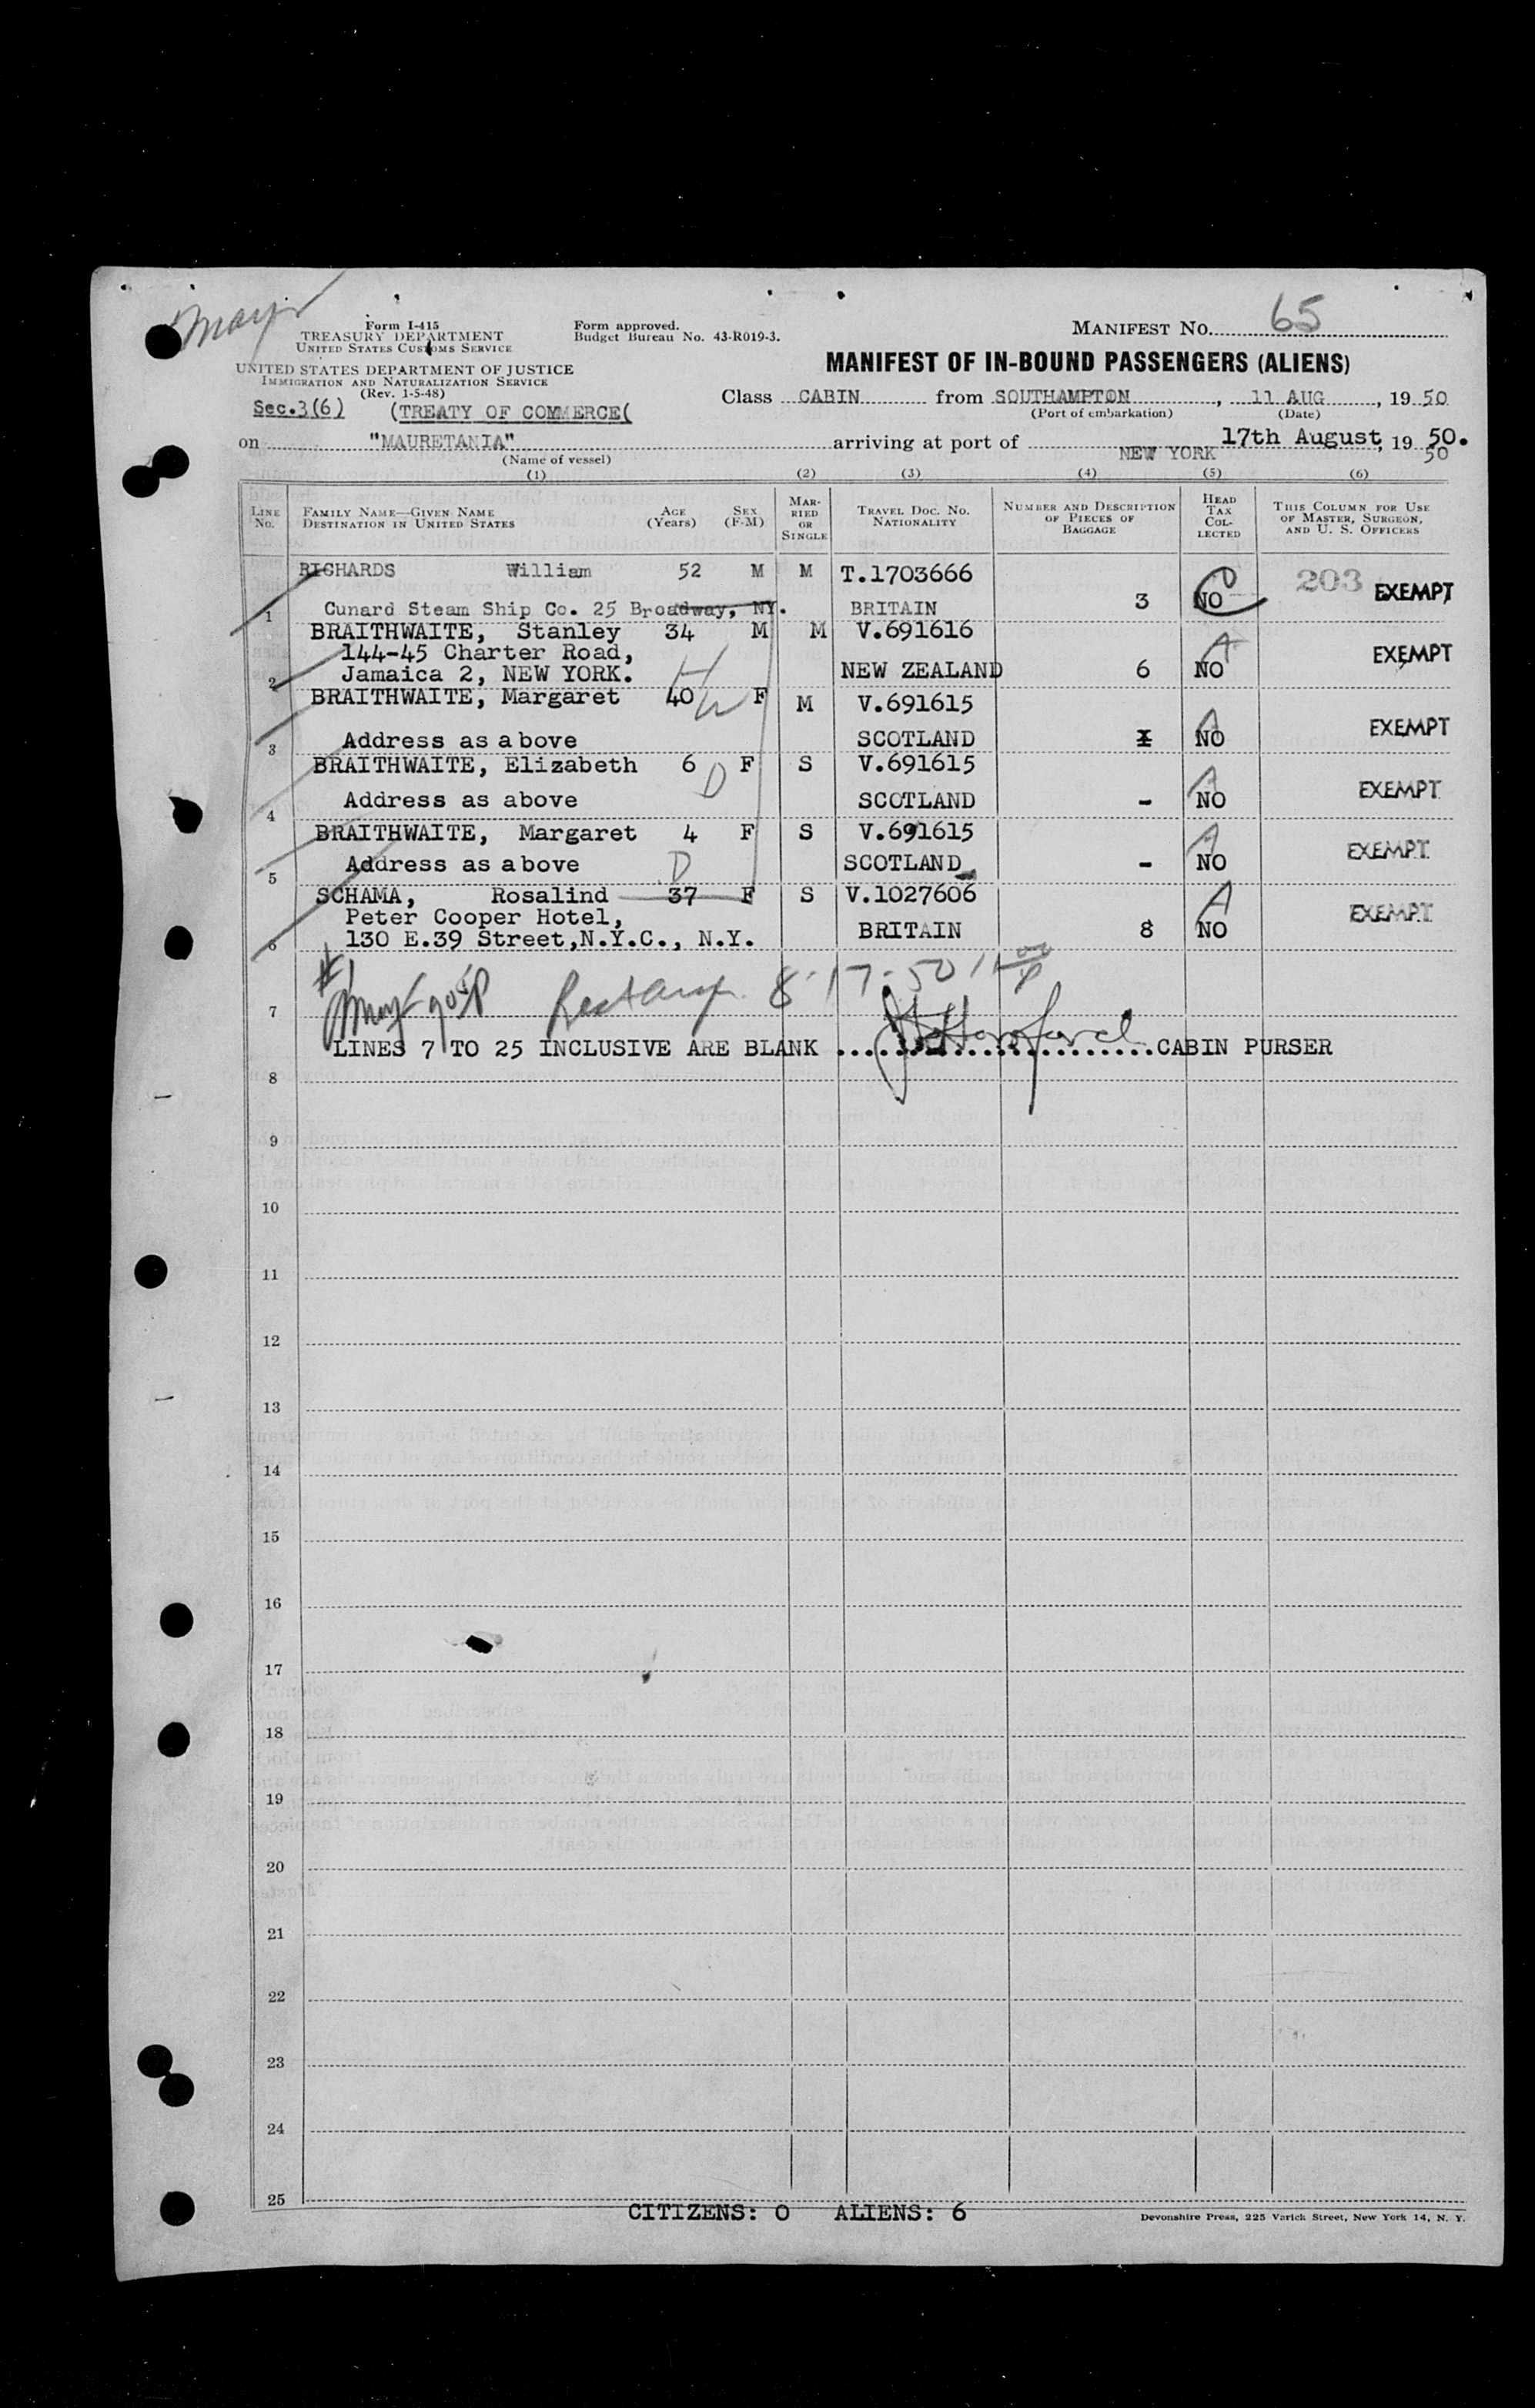 Form I-415
TREASURY DEPARTMENT
UNITED STATES CUSTOMS SERVICE
Form approved.
Budget Bureau No. 43-R019-3.
MANIFEST NO. 65
UNITED STATES DEPARTMENT OF JUSTICE
IMMIGRATION AND NATURALIZATION SERVICE
(Rev. 1-5-48)
MANIFEST OF IN-BOUND PASSENGERS (ALIENS)
Sec.3(6) (TREATY OF COMMERCE(
Class CABIN from SOUTHAMPTON, 11 AUG, 1950
(Port of embarkation) (Date)
on "MAURETANIA" arriving at port of NEW YORK 17th August, 19 50. 50
(Name of vessel)
(1) (2) (3) (4) (5) (6)
LINE NO. FAMILY NAME—GIVEN NAME DESTINATION IN UNITED STATES AGE (Years) SEX (F-M) MARRIED OR SINGLE TRAVEL DOC. NO. NATIONALITY NUMBER AND DESCRIPTION OF PIECES OF BAGGAGE HEAD TAX COLLECTED THIS COLUMN FOR USE OF MASTER, SURGEON, AND U. S. OFFICERS
RICHARDS William 52 M M T.1703666 203 EXEMPT
1 Cunard Steam Ship Co. 25 Broadway, NY. BRITAIN 3 NO
BRAITHWAITE, Stanley 34 M M V.691616
144-45 Charter Road, H A EXEMPT
2 Jamaica 2, NEW YORK. NEW ZEALAND 6 NO
BRAITHWAITE, Margaret 40 W F M V.691615
3 Address as above SCOTLAND A NO EXEMPT
BRAITHWAITE, Elizabeth 6 D F S V.691615
4 Address as above SCOTLAND - A NO EXEMPT
BRAITHWAITE, Margaret 4 F S V.691615
5 Address as above D SCOTLAND - A NO EXEMPT
SCHAMA, Rosalind 37 F S V.1027606 A EXEMPT
Peter Cooper Hotel,
6 130 E.39 Street,N.Y.C., N.Y. BRITAIN 8 NO
#1
7 8-17-50
LINES 7 TO 25 INCLUSIVE ARE BLANK ........................CABIN PURSER
8
9
10
11
12
13
14
15
16
17
18
19
20
21
22
23
24
25
CITIZENS: 0 ALIENS: 6
Devonshire Press, 225 Varick Street, New York 14, N. Y.